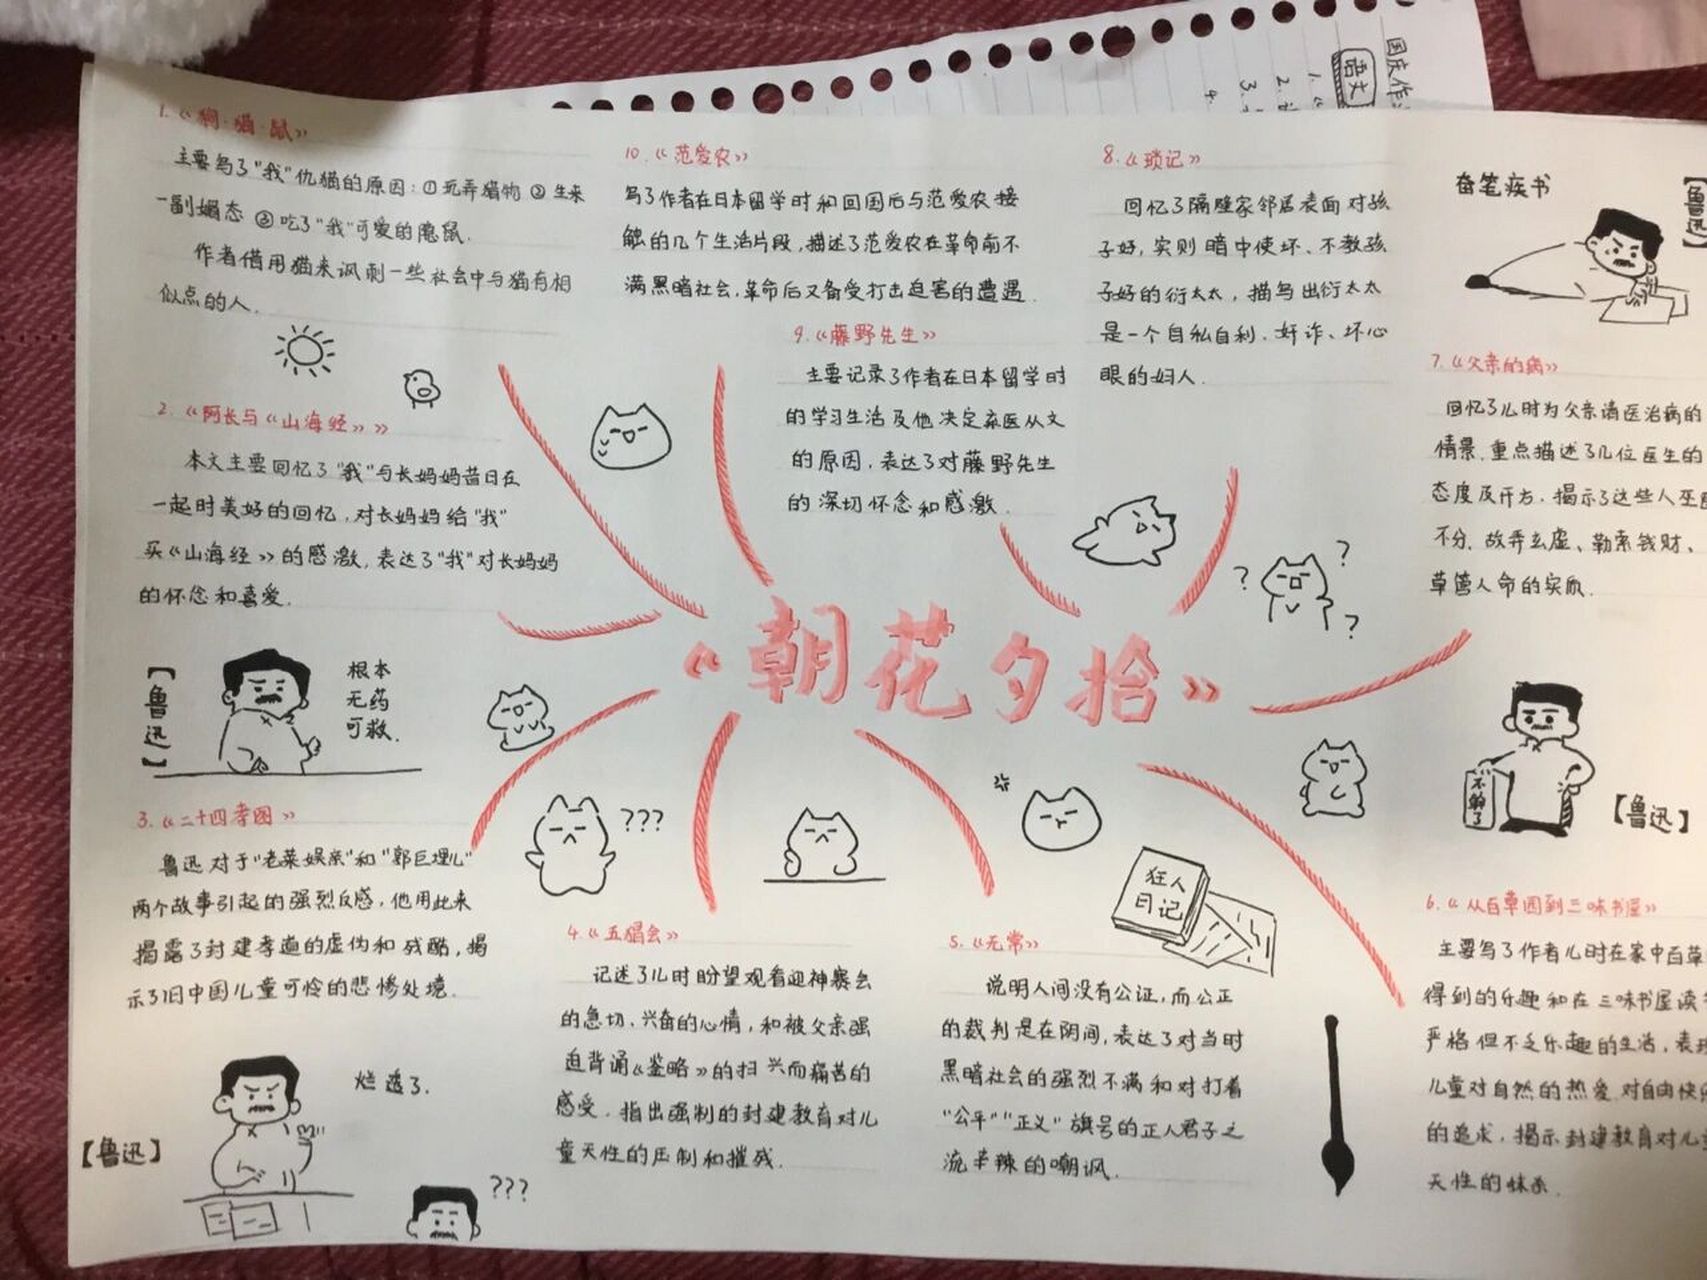 国庆作
语文
1.
2.
3.
4.
1.《狗·猫·鼠》
主要写了"我"仇猫的原因:①玩弄猎物 ②生来
一副媚态 ③吃了"我"可爱的隐鼠.
作者借用猫来讽刺一些社会中与猫有相
似点的人.
2.《阿长与《山海经》》
本文主要回忆了"我"与长妈妈昔日在
一起时美好的回忆,对长妈妈给"我"
买《山海经》的感激,表达了"我"对长妈妈
的怀念和喜爱.
【鲁迅】
根本
无药
可救.
3.《二十四孝图》
鲁迅对于"老莱娱亲"和"郭巨埋儿"
两个故事引起的强烈反感,他用此来
揭露了封建孝道的虚伪和残酷,揭
示了旧中国儿童可怜的悲惨处境.
烂透了.
【鲁迅】
???
10.《范爱农》
写了作者在日本留学时和回国后与范爱农接
触的几个生活片段,描述了范爱农在革命前不
满黑暗社会,革命后又备受打击迫害的遭遇.
9.《藤野先生》
主要记录了作者在日本留学时
的学习生活及他决定弃医从文
的原因,表达了对藤野先生
的深切怀念和感激.
8.《琐记》
回忆了隔壁家邻居表面对孩
子好,实则暗中使坏、不教孩
子好的衍太太,描写出衍太太
是一个自私自利、奸诈、坏心
眼的妇人.
奋笔疾书
【鲁迅】
7.《父亲的病》
回忆了儿时为父亲请医治病的
情景,重点描述了几位医生的
态度及开方.揭示了这些人巫医
不分、故弄玄虚、勒索钱财、
草菅人命的实质.
《朝花夕拾》
?
?
?
???
不够了
【鲁迅】
狂人
日记
4.《五猖会》
记述了儿时盼望观看迎神赛会
的急切、兴奋的心情,和被父亲强
迫背诵《鉴略》的扫兴而痛苦的
感受.指出强制的封建教育对儿
童天性的压制和摧残.
5.《无常》
说明人间没有公证,而公正
的裁判是在阴间,表达了对当时
黑暗社会的强烈不满和对打着
"公平""正义"旗号的正人君子之
流辛辣的嘲讽.
6.《从百草园到三味书屋》
主要写了作者儿时在家中百草
得到的乐趣和在三味书屋读
严格但不乏乐趣的生活,表现
儿童对自然的热爱,对自由快
的追求,揭示封建教育对儿童
天性的抹杀.